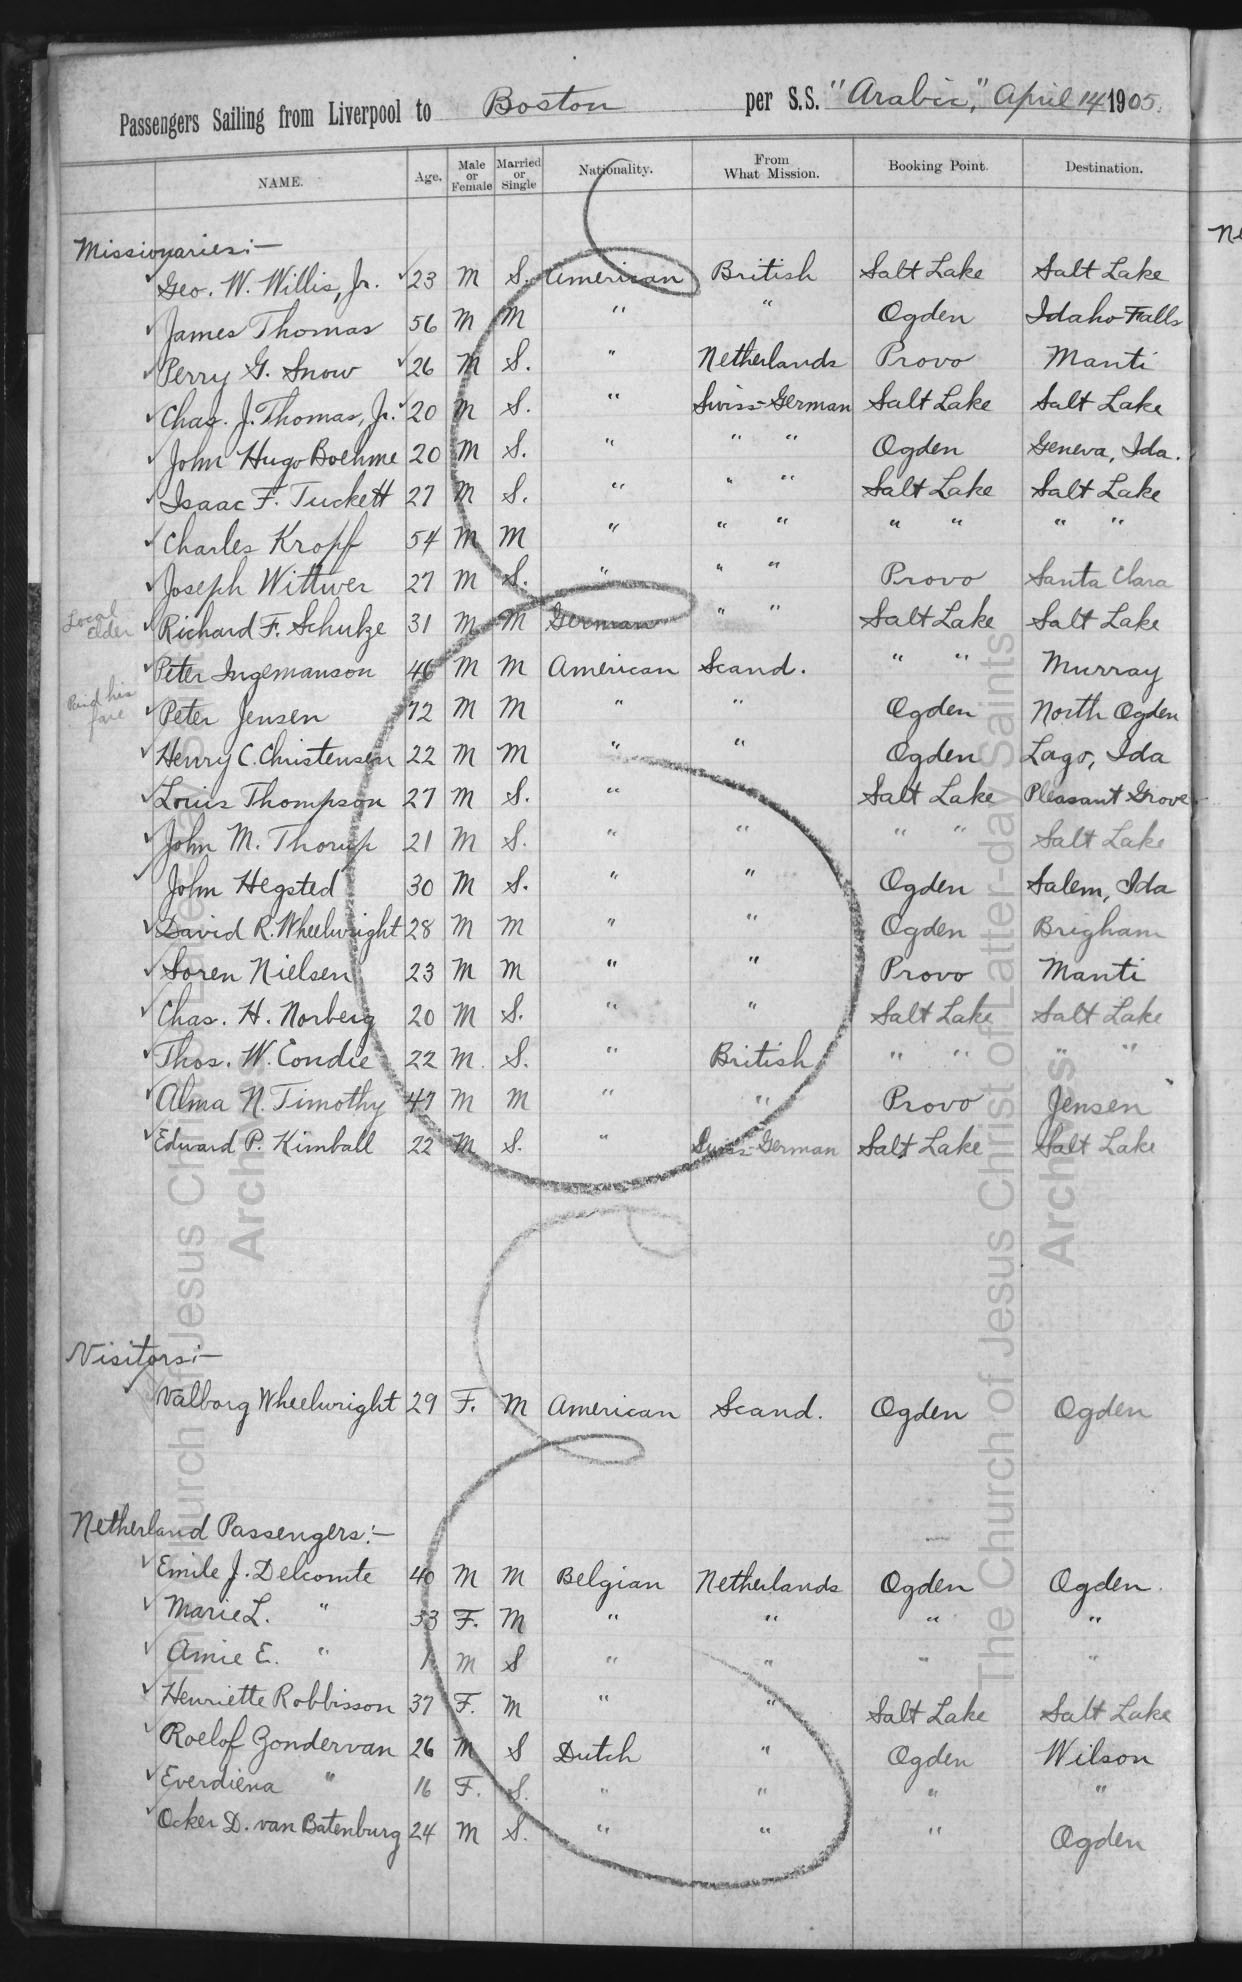 Passengers Sailing from Liverpool to Boston per S.S. "Arabic," April 14 1905.
NAME. Age. Male or Female Married or Single Nationality. From What Mission. Booking Point. Destination.
Missionaries:—
Geo. W. Willis, Jr. 23 M S. American British Salt Lake Salt Lake
James Thomas 56 M M " " Ogden Idaho Falls
Perry G. Snow 26 M S. " Netherlands Provo Manti
Chas. J. Thomas, Jr. 20 M S. " Swiss-German Salt Lake Salt Lake
John Hugo Boehme 20 M S. " " " Ogden Geneva, Ida.
Isaac F. Tuckett 27 M S. " " " Salt Lake Salt Lake
Charles Kropf 54 M M " " " " " " "
Joseph Wittwer 27 M S. " " " Provo Santa Clara
Local Elder Richard F. Schulze 31 M M German " " Salt Lake Salt Lake
Peter Ingemanson 46 M M American Scand. " " Murray
Paid his fare Peter Jensen 72 M M " " Ogden North Ogden
Henry C. Christensen 22 M M " " Ogden Lago, Ida
Louis Thompson 27 M S. " Salt Lake Pleasant Grove
John M. Thorup 21 M S. " " " " Salt Lake
John Hegsted 30 M S. " " Ogden Salem, Ida
David R. Wheelwright 28 M M " " Ogden Brigham
Soren Nielsen 23 M M " " Provo Manti
Chas. H. Norberg 20 M S. " " Salt Lake Salt Lake
Thos. W. Condie 22 M. S. " British " " " "
Alma N. Timothy 47 M M " " Provo Jensen
Edward P. Kimball 22 M S. " Swiss-German Salt Lake Salt Lake
Visitors:—
Valborg Wheelwright 29 F. M American Scand. Ogden Ogden
Netherland Passengers:—
Emile J. Delcomte 40 M M Belgian Netherlands Ogden Ogden.
Marie L. " 33 F. M " " " "
Amie E. " 1 M S " " " "
Henriette Robbisson 37 F. M " " Salt Lake Salt Lake
Roelof Zondervan 26 M S Dutch " Ogden Wilson
Everdiena " 16 F. S. " " " "
Ocker D. van Batenburg 24 M S. " " " Ogden
The Church of Jesus Christ of Latter-day Saints
Archives
The Church of Jesus Christ of Latter-day Saints
Archives